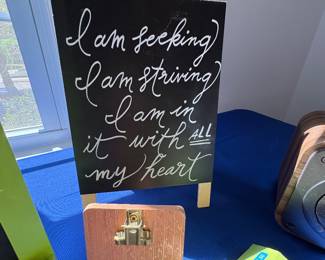 I am seeking
I am striving
I am in
it with ALL
my heart